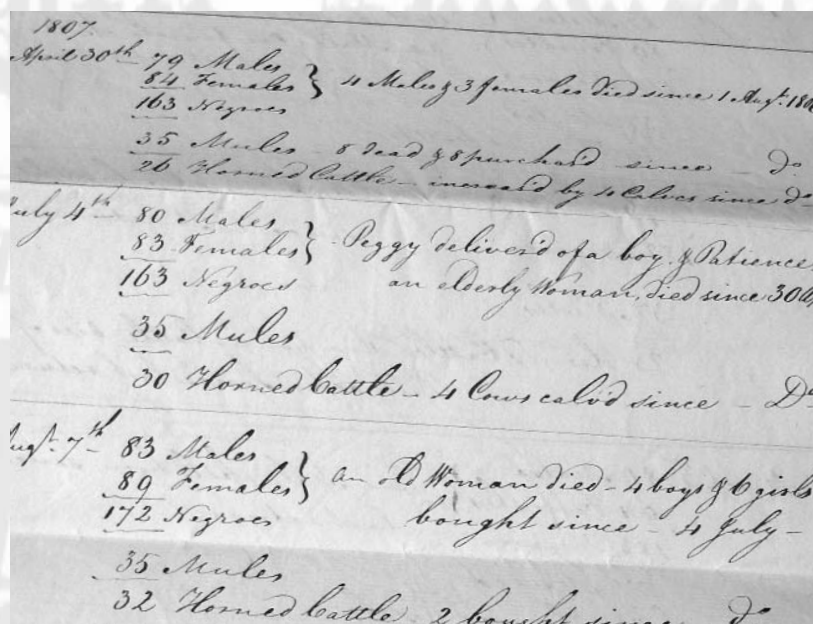 1807.
April 30th 79 Males
84 Females } 4 Males & 3 females died since 1 Augt. 180
163 Negroes
35 Mules - 8 dead & 8 purchas'd since - Do
26 Horned Cattle - increas'd by 4 Calves since do
July 4th 80 Males
83 Females } Peggy deliver'd of a boy & Patience
163 Negroes an elderly Woman, died since 30
35 Mules
30 Horned Cattle - 4 Cows calv'd since - Do
Augt. 7th 83 Males
89 Females } an old Woman died - 4 boys & 6 girls
172 Negroes bought since - 4 July -
35 Mules
32 Horned Cattle 2 bought since do